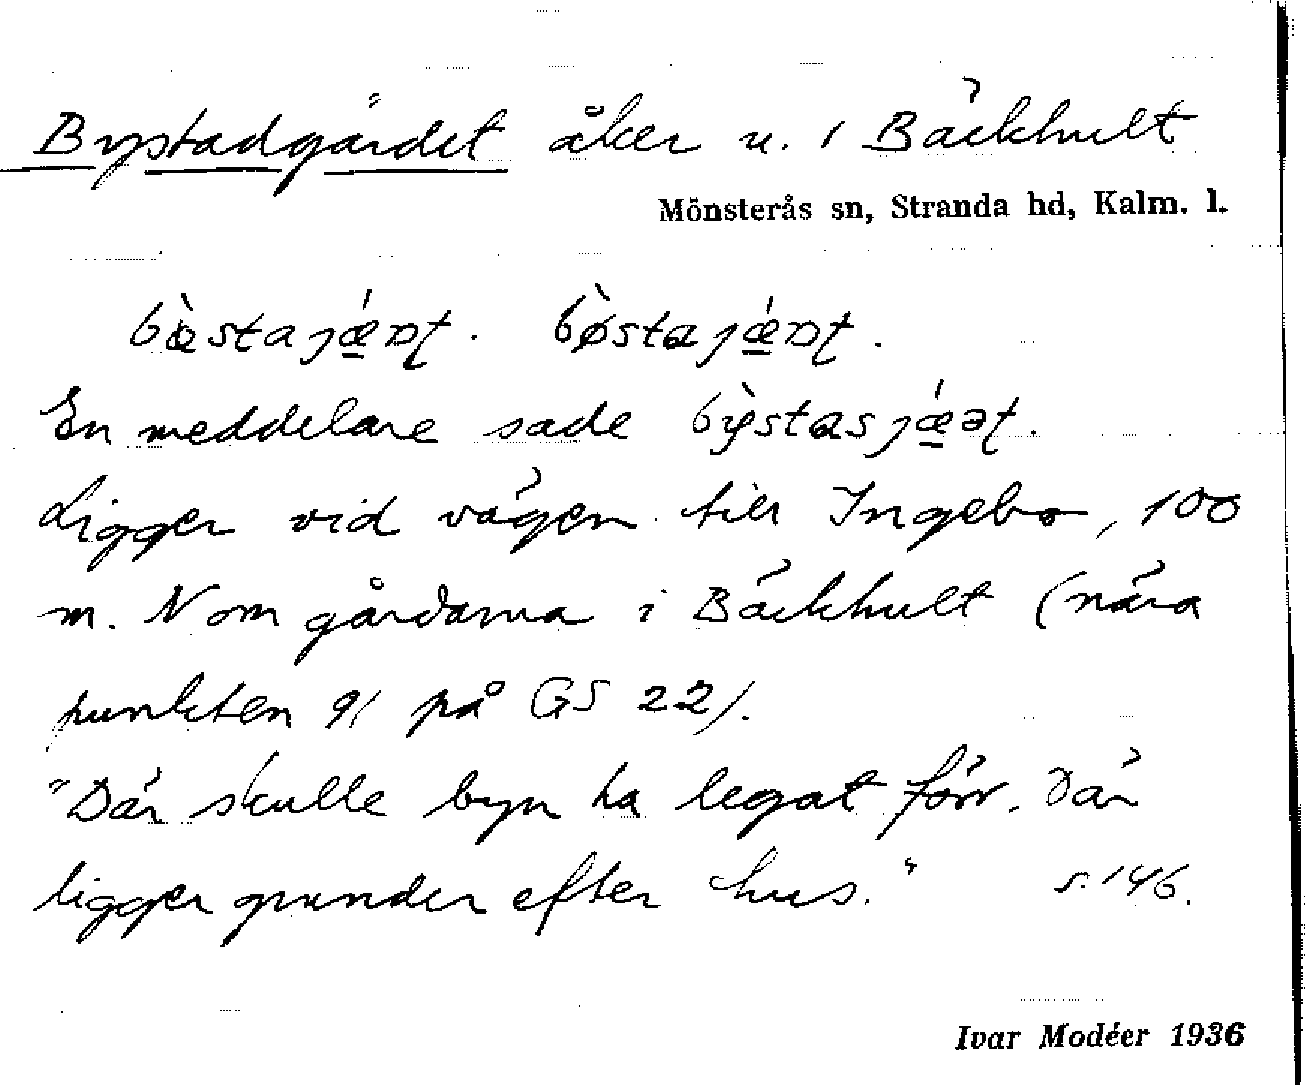 Bystadgärdet åker u. 1 Bäckhult
Mönsterås sn, Stranda hd, Kalm. l.
bæ̀stajǽɒt. bø̀stajǽɒt.
En meddelare sade bỳstasjǽət.
Ligger vid vägen till Ingebo, 100
m. N om gårdarna i Bäckhult (nära
punkten 91 på GS 22).
"Där skulle byn ha legat förr. Där
ligger grunder efter hus." s. 146.
Ivar Modéer 1936